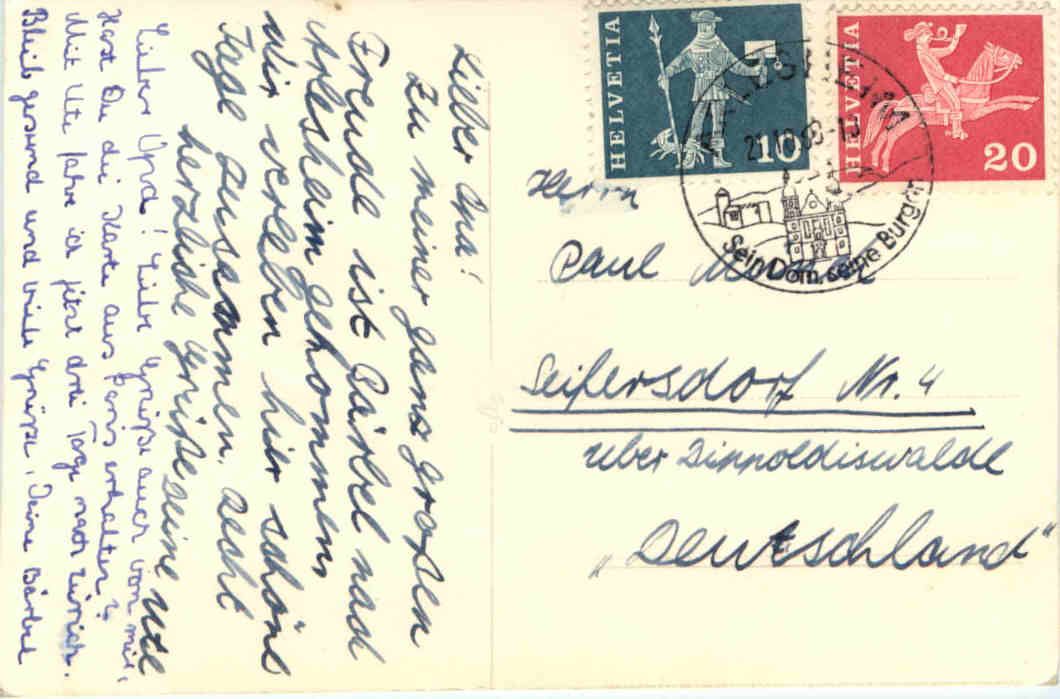 Lieber Opa!
Zu meiner ganz großen
Freude ist Bärbel nach
Arlesheim gekommen,
wir verleben hier schöne
Tage zusammen. Recht
herzliche Grüße deine Ute
Lieber Opa! Liebe Grüße auch von mir,
Hast Du die Karte aus Paris erhalten?
Mit Ute fahre ich jetzt drei Tage nach Zürich.
Bleib gesund und viele Grüße, Deine Bärbel
HELVETIA
10
HELVETIA
20
ARLESHEIM
21.10.63-
Sein Dom, seine Burgen
Herrn
Paul
Seifersdorf Nr. 4
über Dippoldiswalde
„Deutschland“